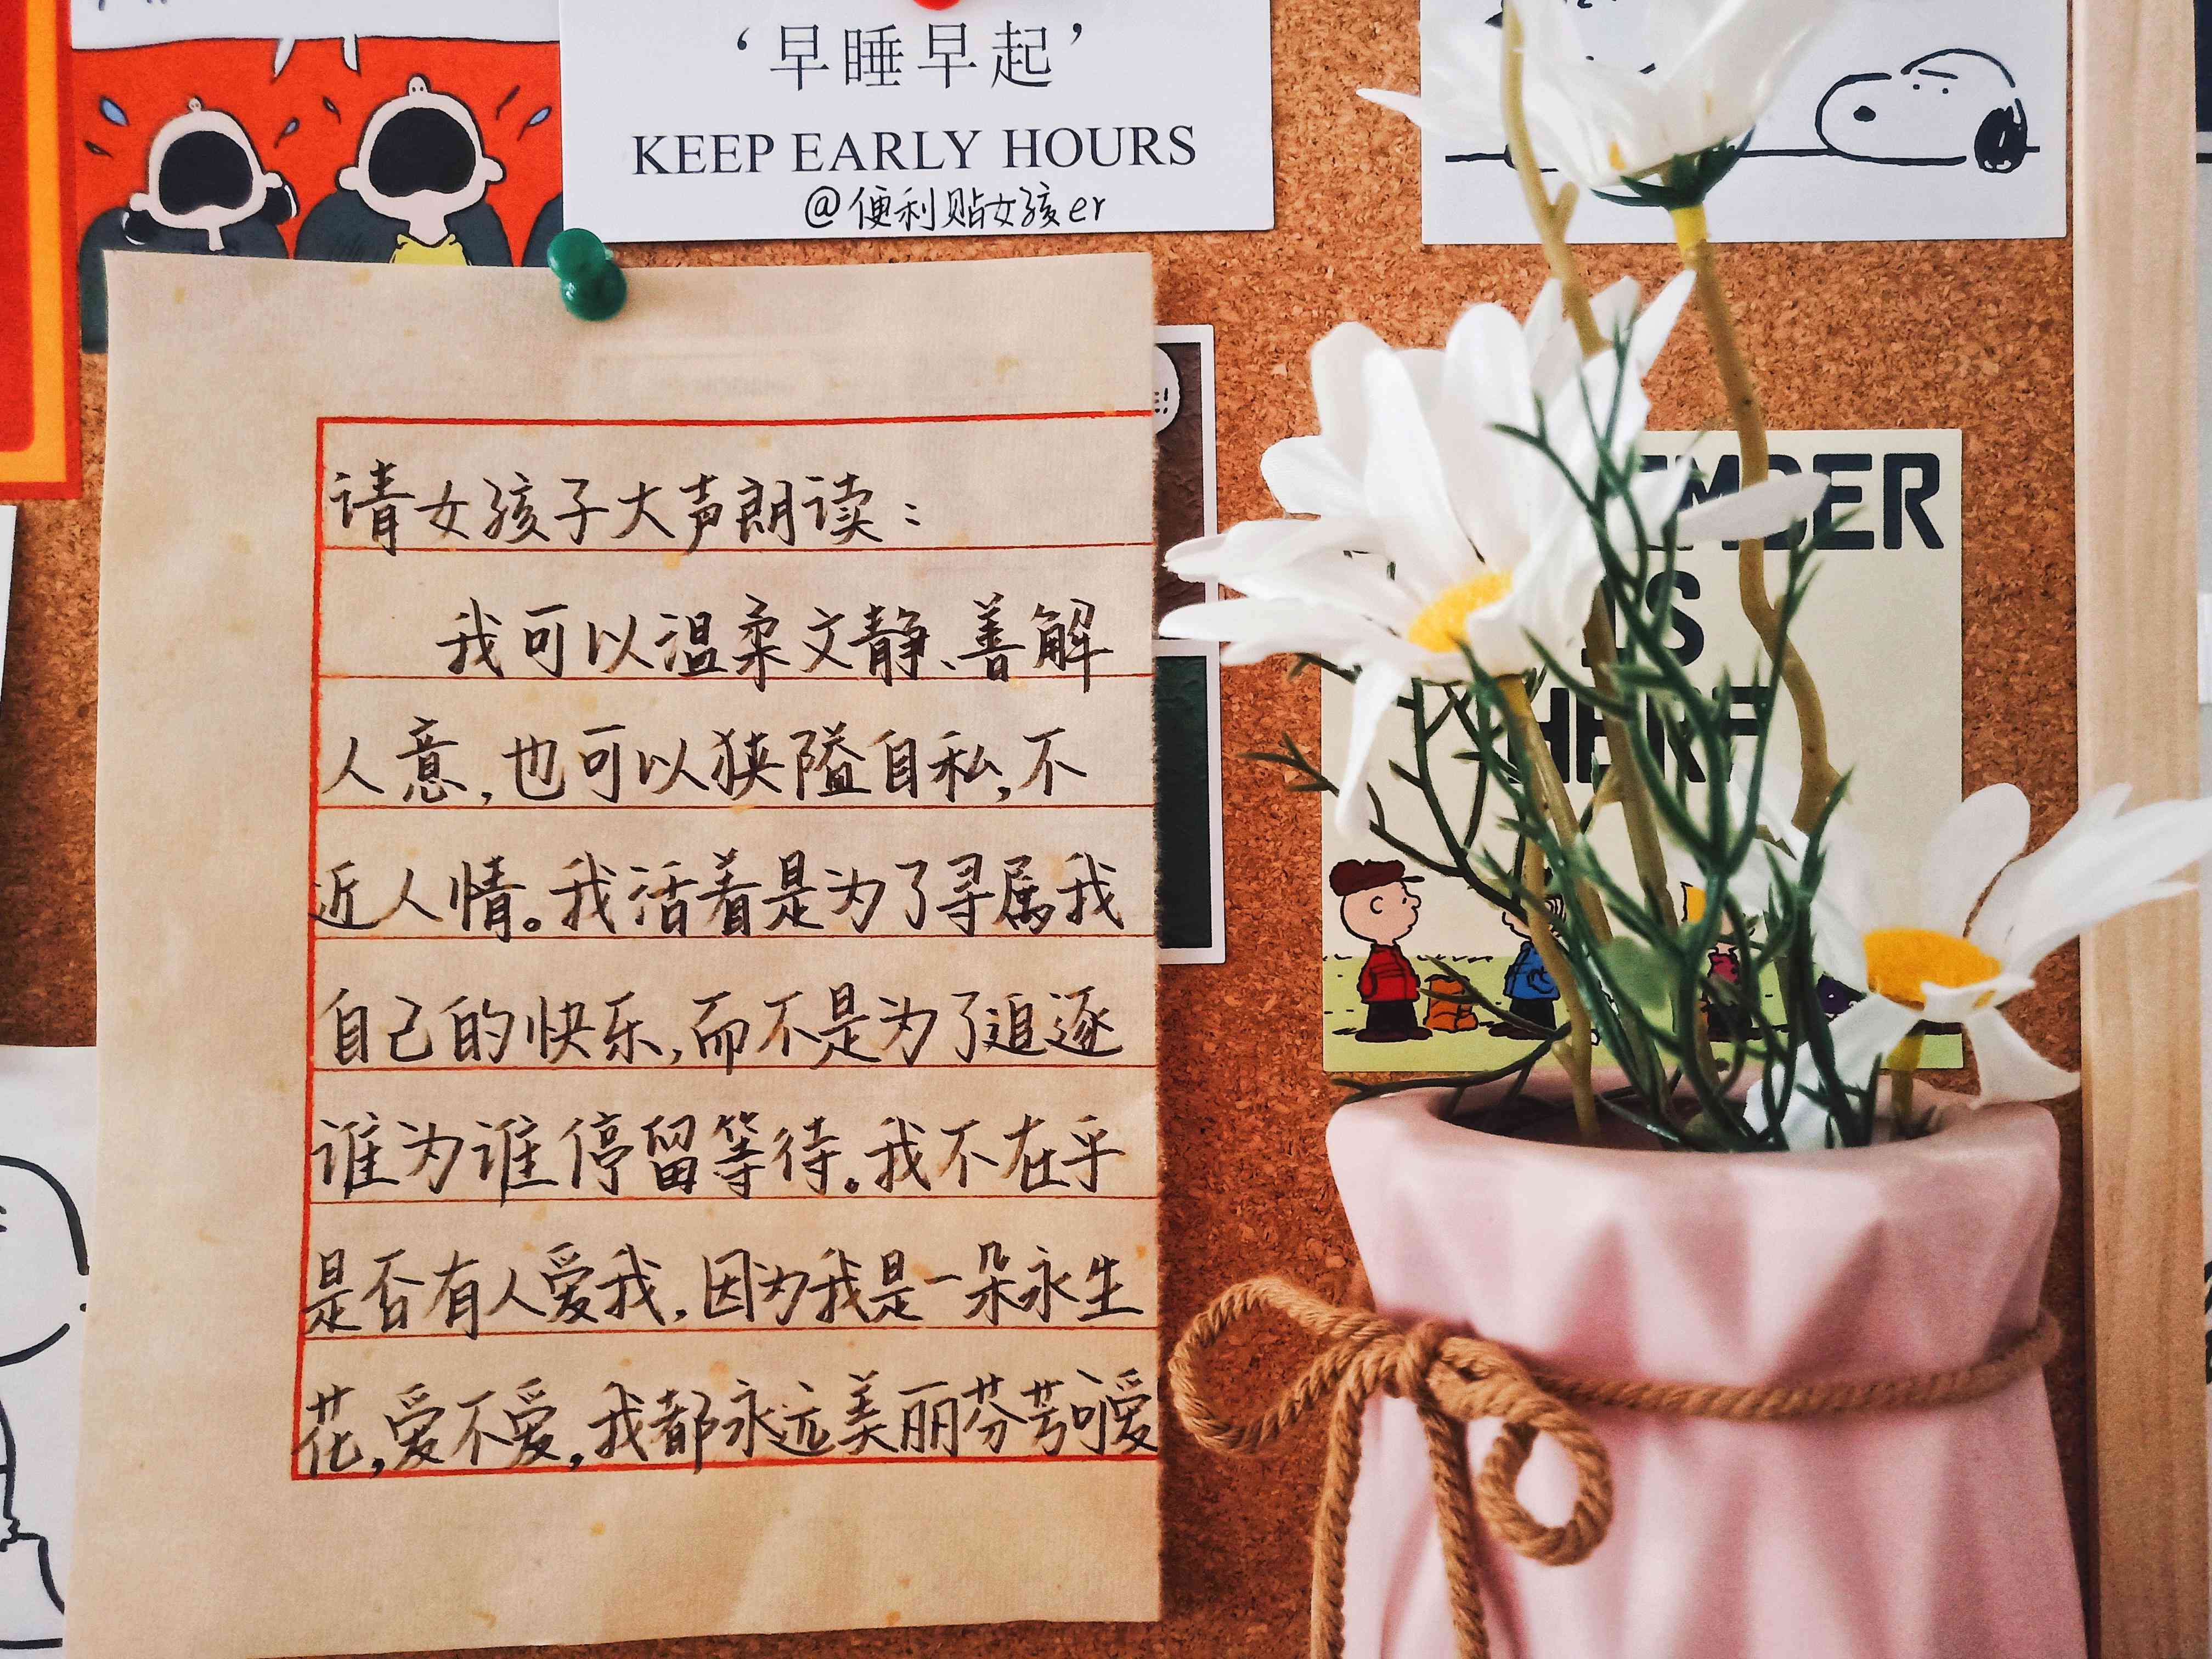 ‘早睡早起’
KEEP EARLY HOURS
@便利贴女孩er
请女孩子大声朗读：
我可以温柔文静、善解
人意,也可以狭隘自私,不
近人情。我活着是为了寻属我
自己的快乐,而不是为了追逐
谁为谁停留等待。我不在乎
是否有人爱我,因为我是一朵永生
花,爱不爱,我都永远美丽芬芳可爱
EMBER
IS
HERE